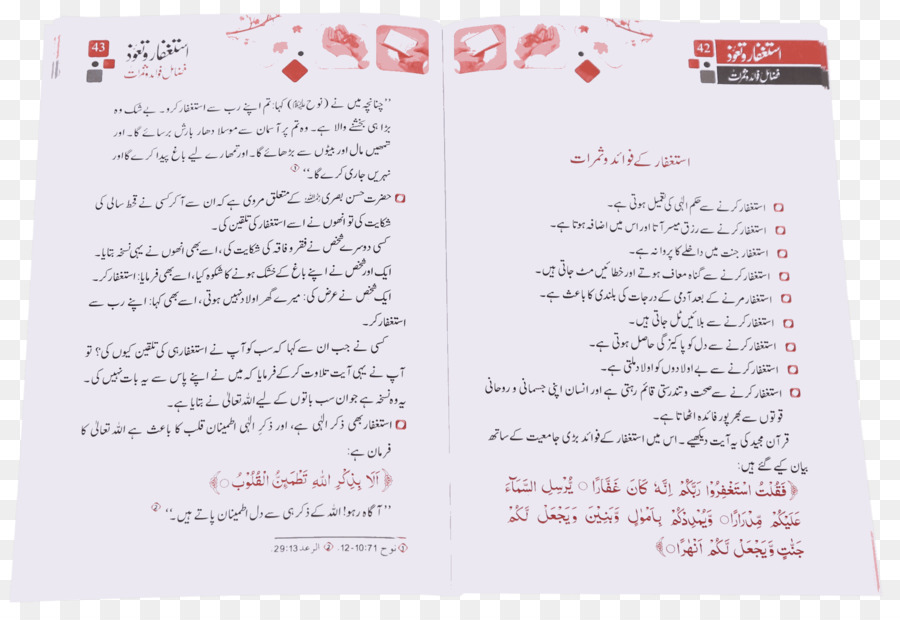 42
استغفار و تعوّذ
فضائل فوائد وثمرات
استغفار کے فوائد و ثمرات
استغفار کرنے سے حکم الٰہی کی تعمیل ہوتی ہے۔
استغفار کرنے سے رزق میسر آتا اور اس میں اضافہ ہوتا ہے۔
استغفار جنت میں داخلے کا پروانہ ہے۔
استغفار کرنے سے گناہ معاف ہوتے اور خطائیں مٹ جاتی ہیں۔
استغفار مرنے کے بعد آدمی کے درجات کی بلندی کا باعث ہے۔
استغفار کرنے سے بلائیں ٹل جاتی ہیں۔
استغفار کرنے سے دل کو پاکیزگی حاصل ہوتی ہے۔
استغفار کرنے سے بے اولادوں کو اولاد ملتی ہے۔
استغفار کرنے سے صحت و تندرستی قائم رہتی ہے اور انسان اپنی جسمانی و روحانی
قوتوں سے بھرپور فائدہ اٹھاتا ہے۔
قرآن مجید کی یہ آیت دیکھیے۔ اس میں استغفار کے فوائد بڑی جامعیت کے ساتھ
بیان کیے گئے ہیں:
﴿فَقُلْتُ اسْتَغْفِرُوْا رَبَّكُمْ اِنَّهٗ كَانَ غَفَّارًا ○ يُّرْسِلِ السَّمَآءَ
عَلَيْكُمْ مِّدْرَارًا ○ وَّيُمْدِدْكُمْ بِاَمْوٰلٍ وَّبَنِيْنَ وَيَجْعَلْ لَّكُمْ
جَنّٰتٍ وَّيَجْعَلْ لَّكُمْ اَنْهٰرًا ○﴾
43
استغفار و تعوّذ
فضائل فوائد وثمرات
’’چنانچہ میں نے (نوح علیہ السلام) کہا: تم اپنے رب سے استغفار کرو۔ بے شک وہ
بڑا ہی بخشنے والا ہے۔ وہ تم پر آسمان سے موسلا دھار بارش برسائے گا۔ اور
تمھیں مال اور بیٹوں سے بڑھائے گا۔ اور تمھارے لیے باغ پیدا کرے گا اور
نہریں جاری کرے گا۔‘‘ ①
حضرت حسن بصری رحمہ اللہ کے متعلق مروی ہے کہ ان سے آ کر کسی نے قحط سالی کی
شکایت کی تو انھوں نے اسے استغفار کی تلقین کی۔
کسی دوسرے شخص نے فقر و فاقہ کی شکایت کی، اسے بھی انھوں نے یہی نسخہ بتایا۔
ایک اور شخص نے اپنے باغ کے خشک ہونے کا شکوہ کیا، اسے بھی فرمایا: استغفار کر۔
ایک شخص نے عرض کی: میرے گھر اولاد نہیں ہوتی، اسے بھی کہا: اپنے رب سے
استغفار کر۔
کسی نے جب ان سے کہا کہ سب کو آپ نے استغفار ہی کی تلقین کیوں کی؟ تو
آپ نے یہی آیت تلاوت کر کے فرمایا کہ میں نے اپنے پاس سے یہ بات نہیں کی۔
یہ وہ نسخہ ہے جو ان سب باتوں کے لیے اللہ تعالیٰ نے بتایا ہے۔
استغفار بھی ذکر الٰہی ہے، اور ذکر الٰہی اطمینان قلب کا باعث ہے اللہ تعالیٰ کا
فرمان ہے:
﴿اَلَا بِذِكْرِ اللّٰهِ تَطْمَىِٕنُّ الْقُلُوْبُ ○﴾
’’آگاہ رہو! اللہ کے ذکر ہی سے دل اطمینان پاتے ہیں۔‘‘ ②
① نوح 71:10-12. ② الرعد 13:29.